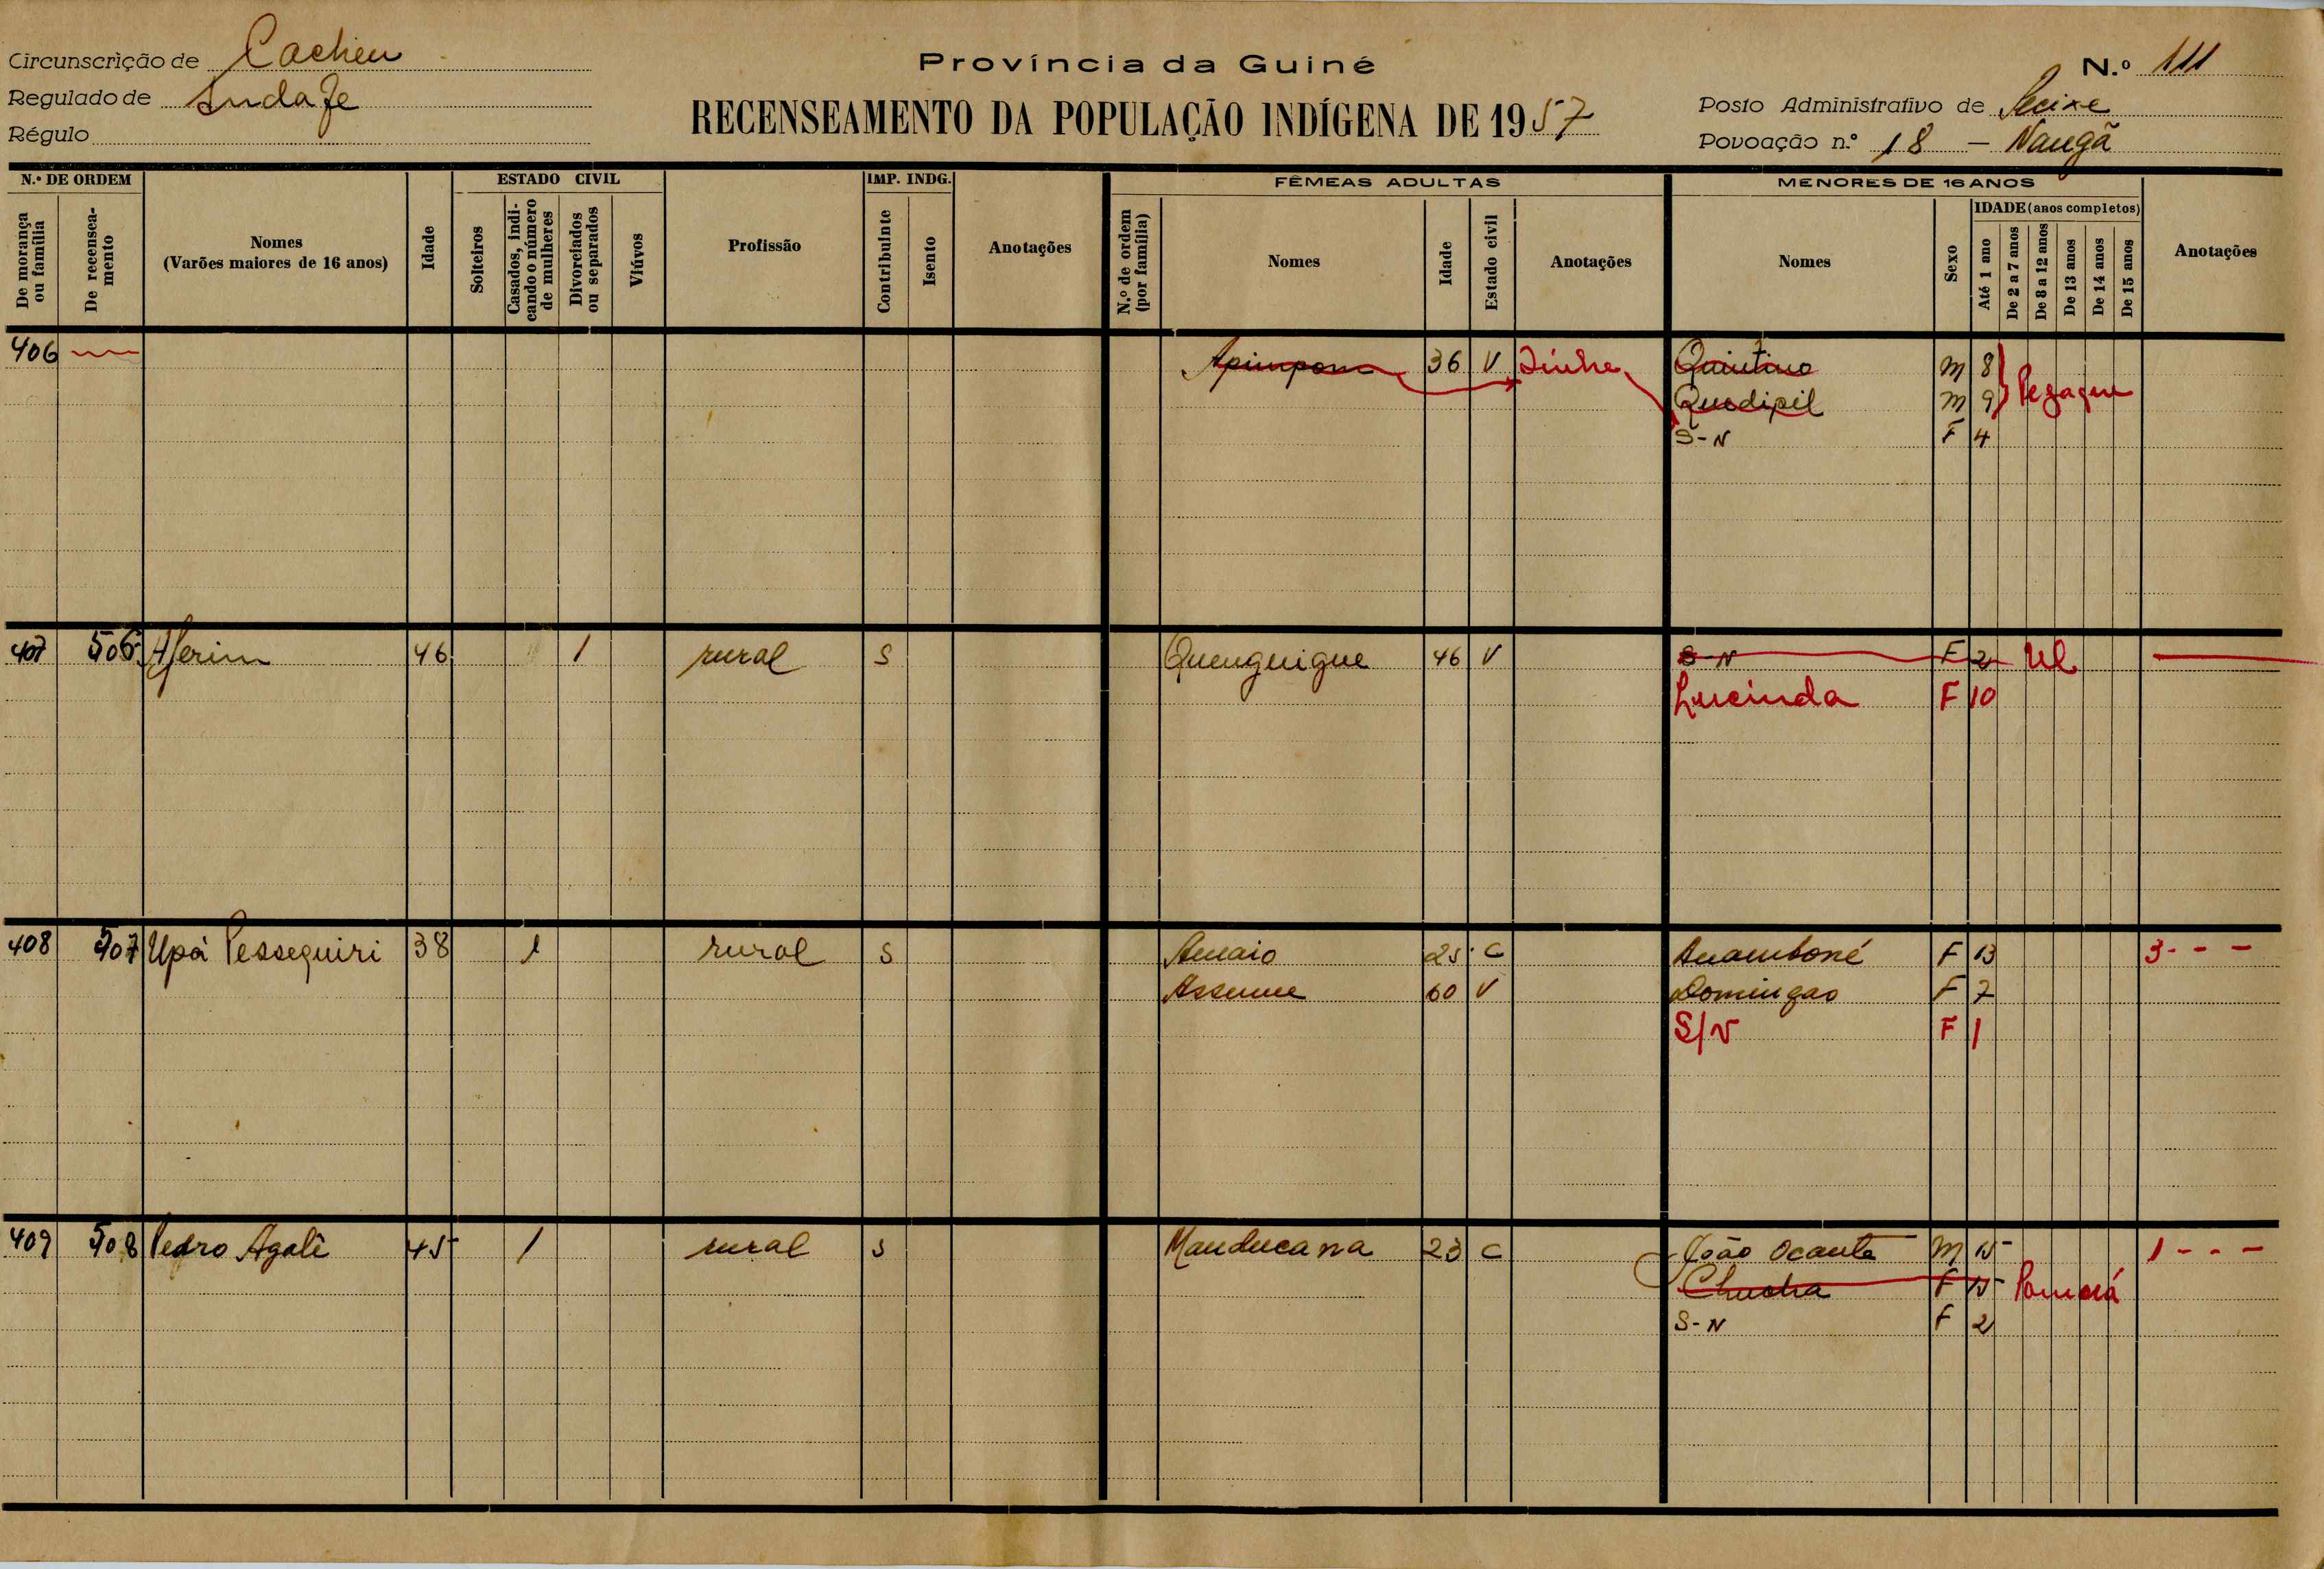 Circunscrição de Cacheu
Província da Guiné
N.º 111
Regulado de
RECENSEAMENTO DA POPULAÇÃO INDÍGENA DE 1957
Posto Administrativo de
Régulo
Povoação n.º 18 – Naugã
N.º DE ORDEM
De morança ou família
De recenseamento
Nomes
(Varões maiores de 16 anos)
Idade
ESTADO CIVIL
Solteiros
Casados, indicando o número de mulheres
Divorciados ou separados
Viúvos
Profissão
IMP. INDG.
Contribuinte
Isento
Anotações
FÊMEAS ADULTAS
N.º de ordem (por família)
Nomes
Idade
Estado civil
Anotações
MENORES DE 16 ANOS
Nomes
Sexo
IDADE (anos completos)
Até 1 ano
De 2 a 7 anos
De 8 a 12 anos
De 13 anos
De 14 anos
De 15 anos
Anotações
406 36 V Quintino M 8
Quedipil M 9
S-N F 4
407 506 46 1 rural S Quenguigue 46 V S-N F 2
Lucinda F 10
408 507 Upá Pessequiri 38 1 rural S Amaio 25 C F 13 3 - - -
60 V Domingas F 7
S/N F 1
409 508 Pedro Agalê 45 1 rural S Manducana 23 C João Ocante M 15 1 - - -
F 15
S-N F 2